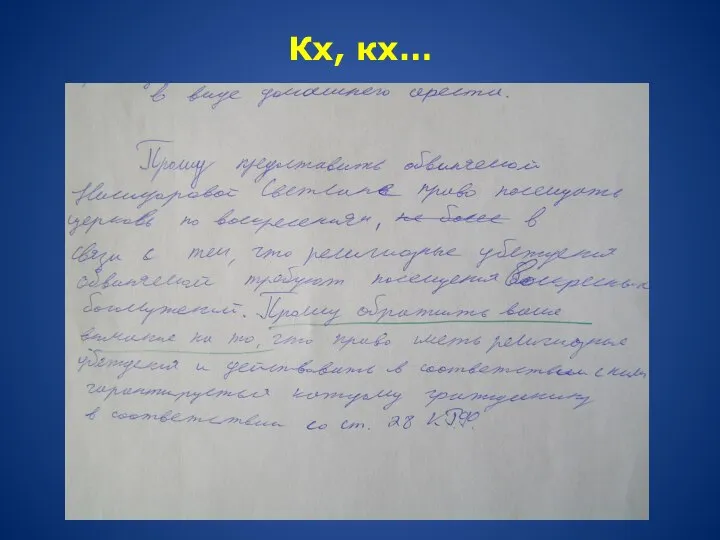 Кх, кх...
в виде домашнего ареста.
Прошу представить обвиняемой
Светлане право посещать
церковь по воскресениям, не более в
связи с тем, что религиозные убеждения
обвиняемой требуют посещения Воскресных
богослужений. Прошу обратить ваше
внимание на то, что право иметь религиозные
убеждения и действовать в соответствии с ними
гарантируется каждому гражданину
в соответствии со ст. 28 К.Р.Ф.